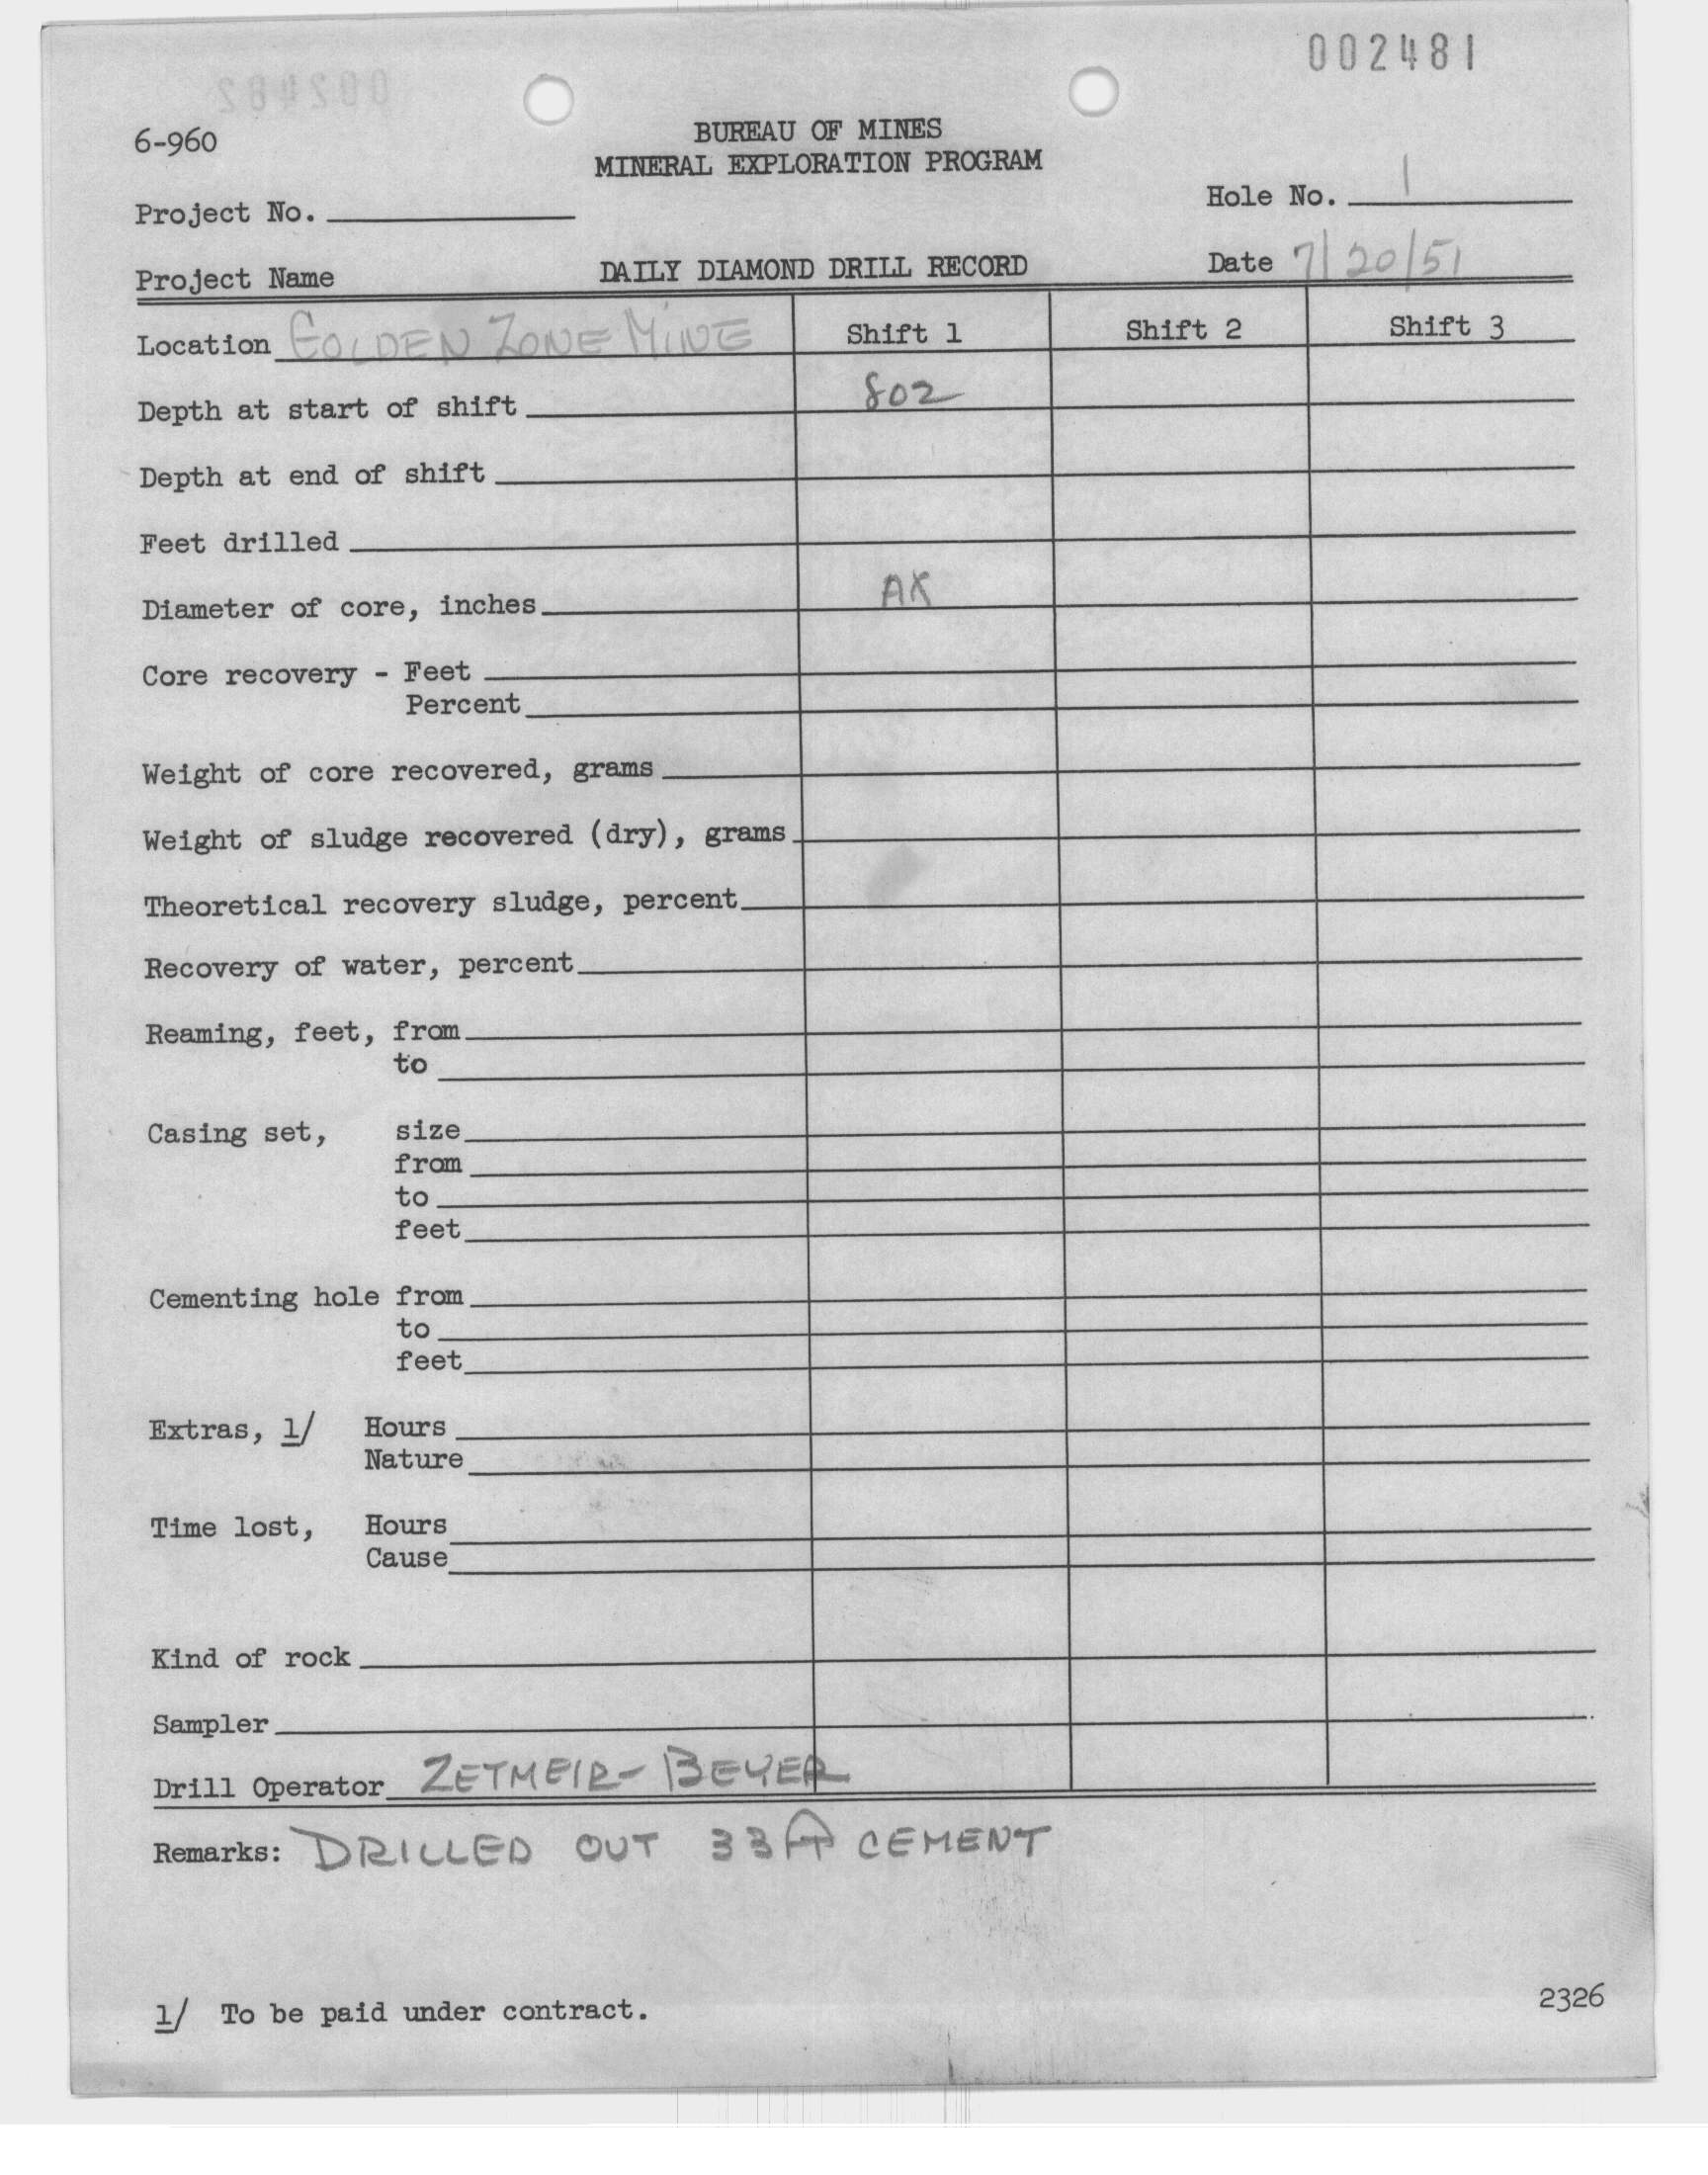 002481
6-960
BUREAU OF MINES
MINERAL EXPLORATION PROGRAM
Project No.
Hole No. 1
Project Name
DAILY DIAMOND DRILL RECORD
Date 7/20/51
Location GOLDEN ZONE MINE Shift 1 Shift 2 Shift 3
Depth at start of shift 802
Depth at end of shift
Feet drilled
Diameter of core, inches AX
Core recovery - Feet
Percent
Weight of core recovered, grams
Weight of sludge recovered (dry), grams
Theoretical recovery sludge, percent
Recovery of water, percent
Reaming, feet, from
to
Casing set, size
from
to
feet
Cementing hole from
to
feet
Extras, 1/ Hours
Nature
Time lost, Hours
Cause
Kind of rock
Sampler
Drill Operator ZETMEIR-BEYER
Remarks: DRILLED OUT 33 FT CEMENT
1/ To be paid under contract.
2326